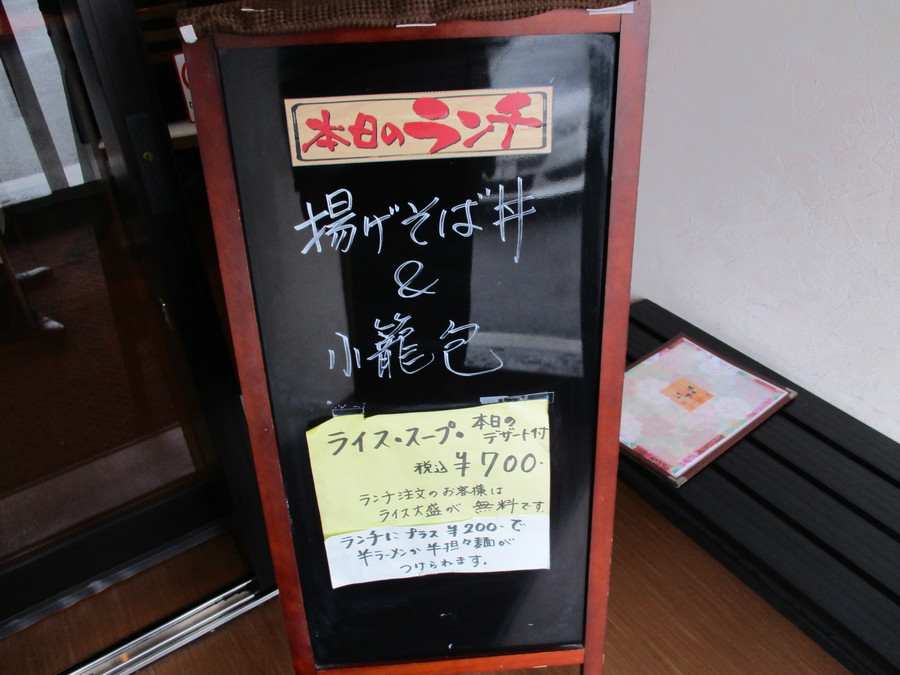 本日のランチ
揚げそば丼
&
小籠包
ライス・スープ・本日の
デザート付
税込 ¥700-
ランチ注文のお客様は
ライス大盛が 無料です
ランチにプラス ¥200-で
半ラーメンか半担々麺が
つけられます。